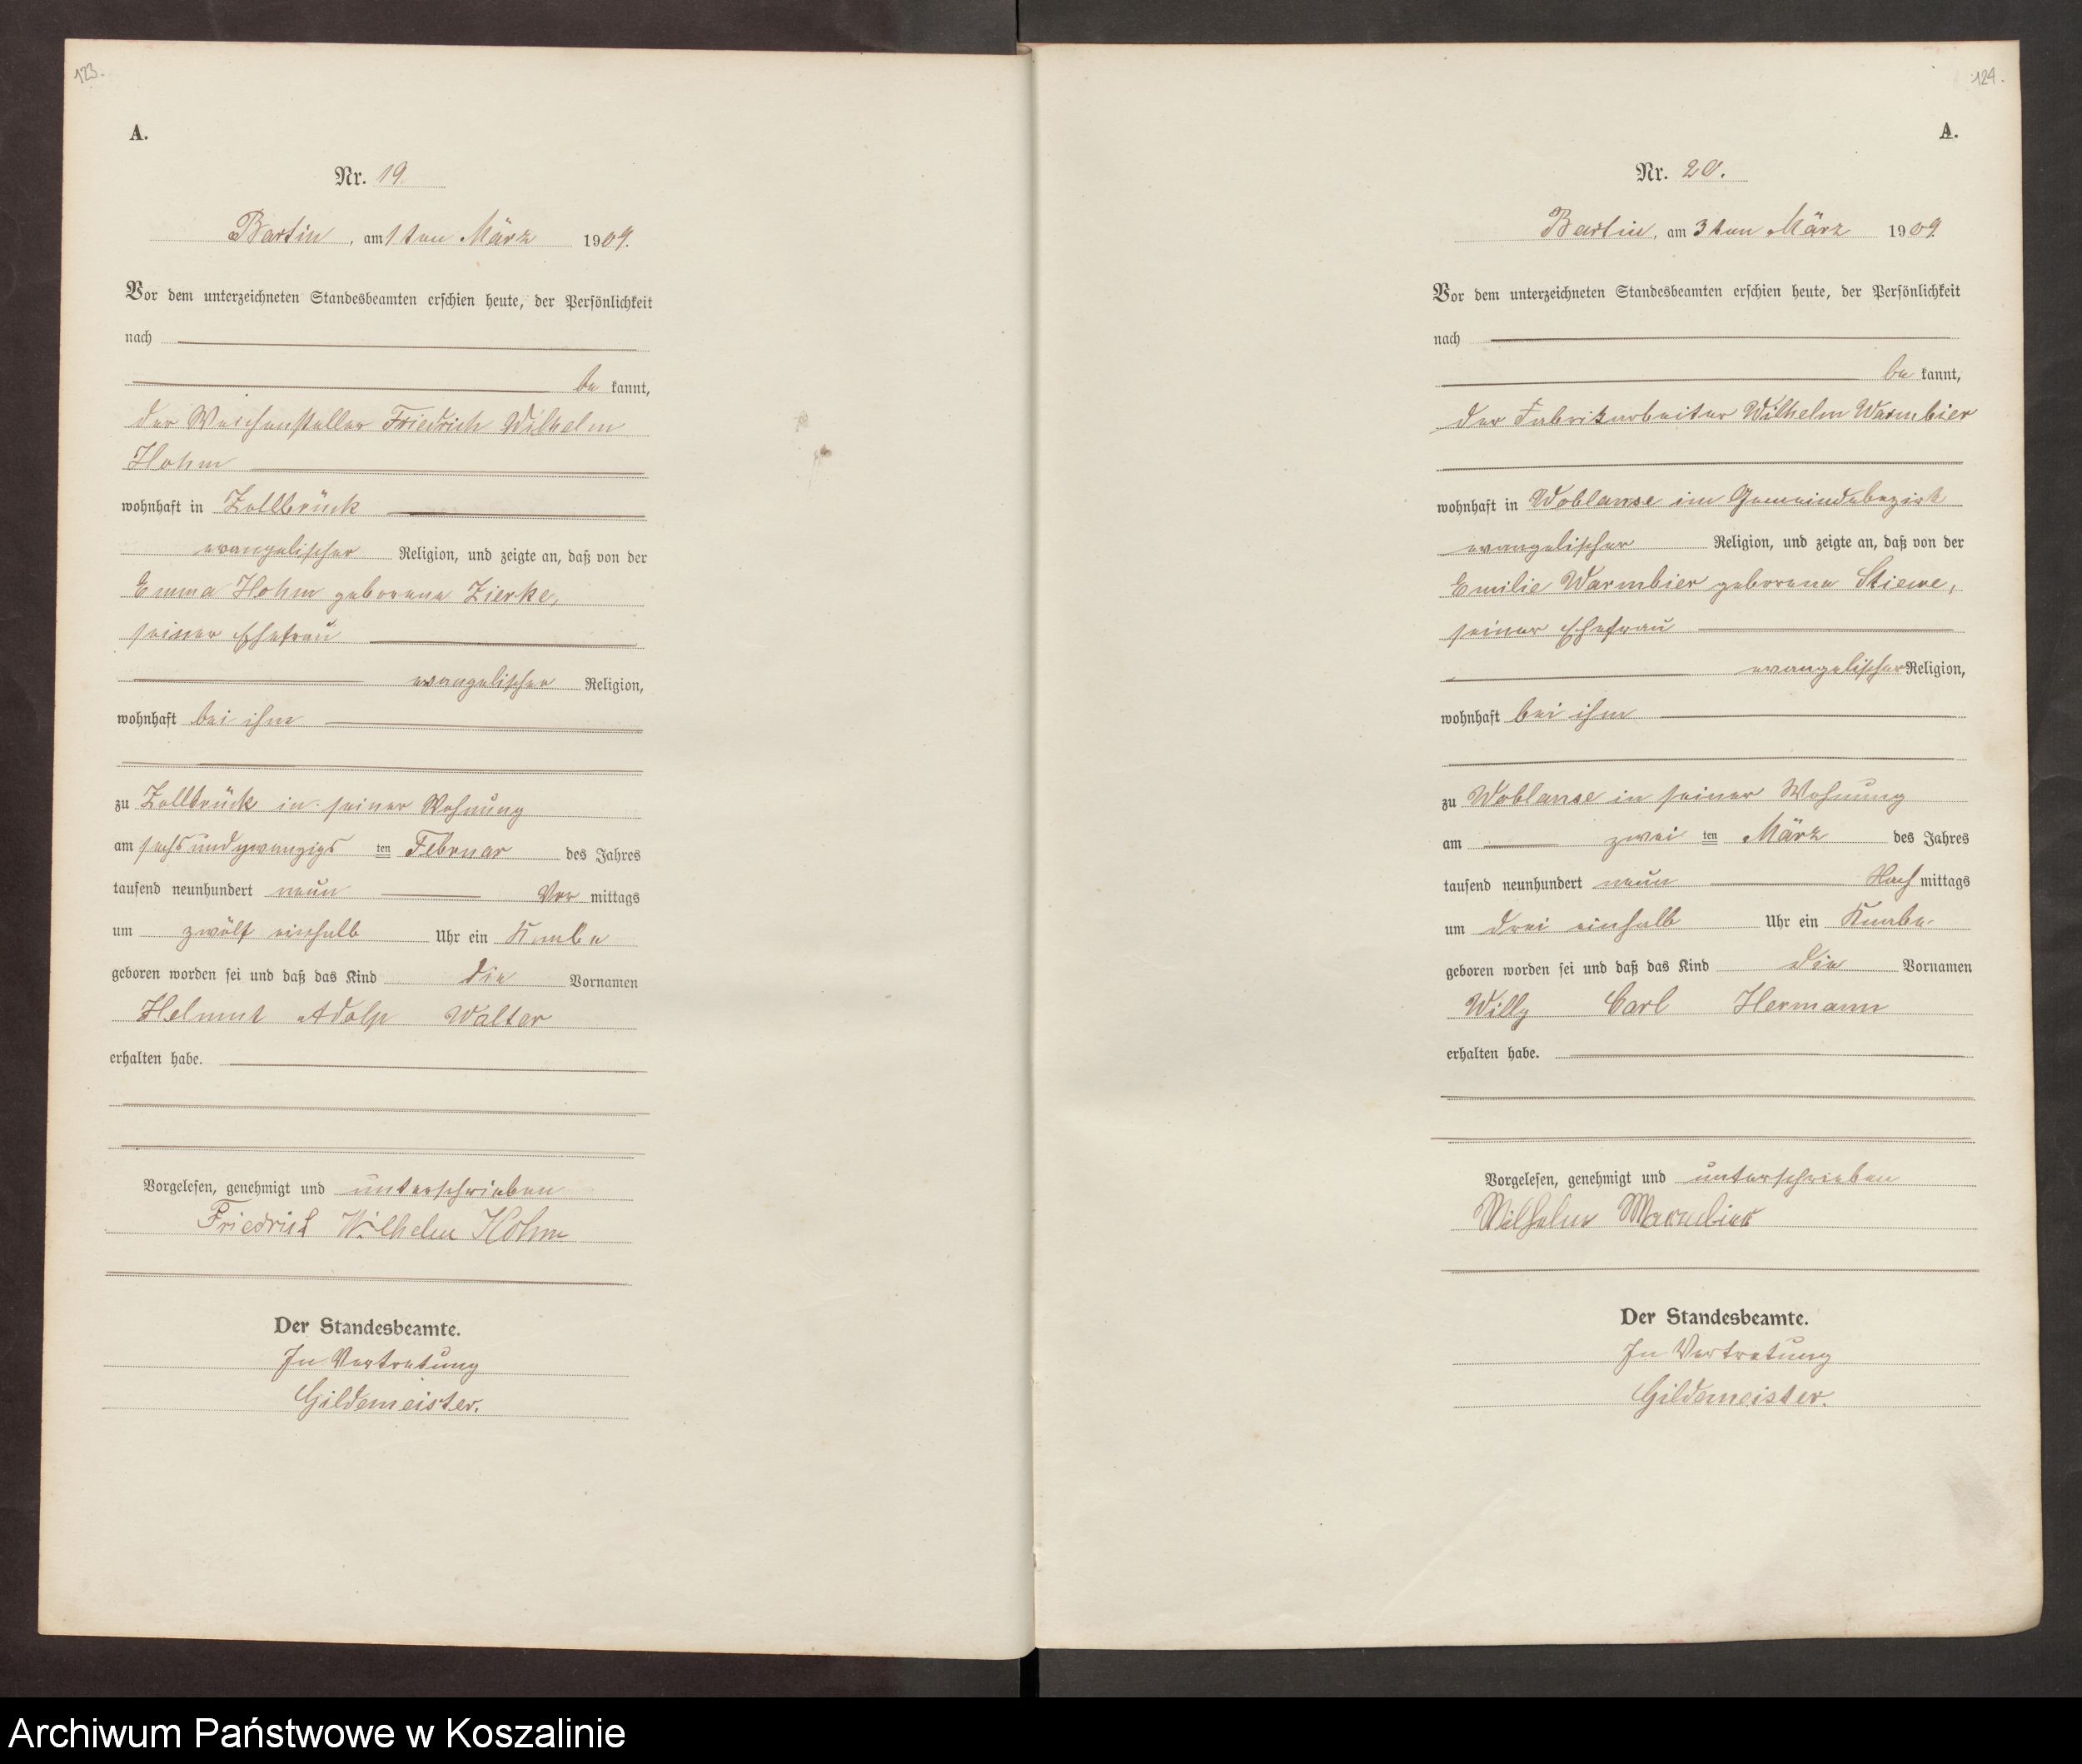 123.
A.
Nr. 19.
Bartin, am 1ten März 1909.
Vor dem unterzeichneten Standesbeamten erschien heute, der Persönlichkeit
nach
be kannt,
der Weichensteller Friedrich Wilhelm
Hohm
wohnhaft in Zollbrück
evangelischer Religion, und zeigte an, daß von der
Emma Hohm geborene Zierke,
seiner Ehefrau
evangelischer Religion,
wohnhaft bei ihm
zu Zollbrück in seiner Wohnung
am sechsundzwanzigs ten Februar des Jahres
tausend neunhundert neun Vor mittags
um zwölf einhalb Uhr ein Knabe
geboren worden sei und daß das Kind die Vornamen
Helmut Adolp Walter
erhalten habe.
Vorgelesen, genehmigt und unterschrieben
Friedrich Wilhelm Hohm
Der Standesbeamte.
In Vertretung
Gildemeister.
124.
A.
Nr. 20.
Bartin, am 3ten März 1909.
Vor dem unterzeichneten Standesbeamten erschien heute, der Persönlichkeit
nach
be kannt,
der Fabrikarbeiter Wilhelm Warmbier
wohnhaft in Woblanse im Gemeindebezirk
evangelischer Religion, und zeigte an, daß von der
Emilie Warmbier geborene Stiewe,
seiner Ehefrau
evangelischer Religion,
wohnhaft bei ihm
zu Woblanse in seiner Wohnung
am zwei ten März des Jahres
tausend neunhundert neun Nach mittags
um drei einhalb Uhr ein Knabe
geboren worden sei und daß das Kind die Vornamen
Willy Carl Hermann
erhalten habe.
Vorgelesen, genehmigt und unterschrieben
Wilhelm Warmbier
Der Standesbeamte.
In Vertretung
Gildemeister.
Archiwum Państwowe w Koszalinie